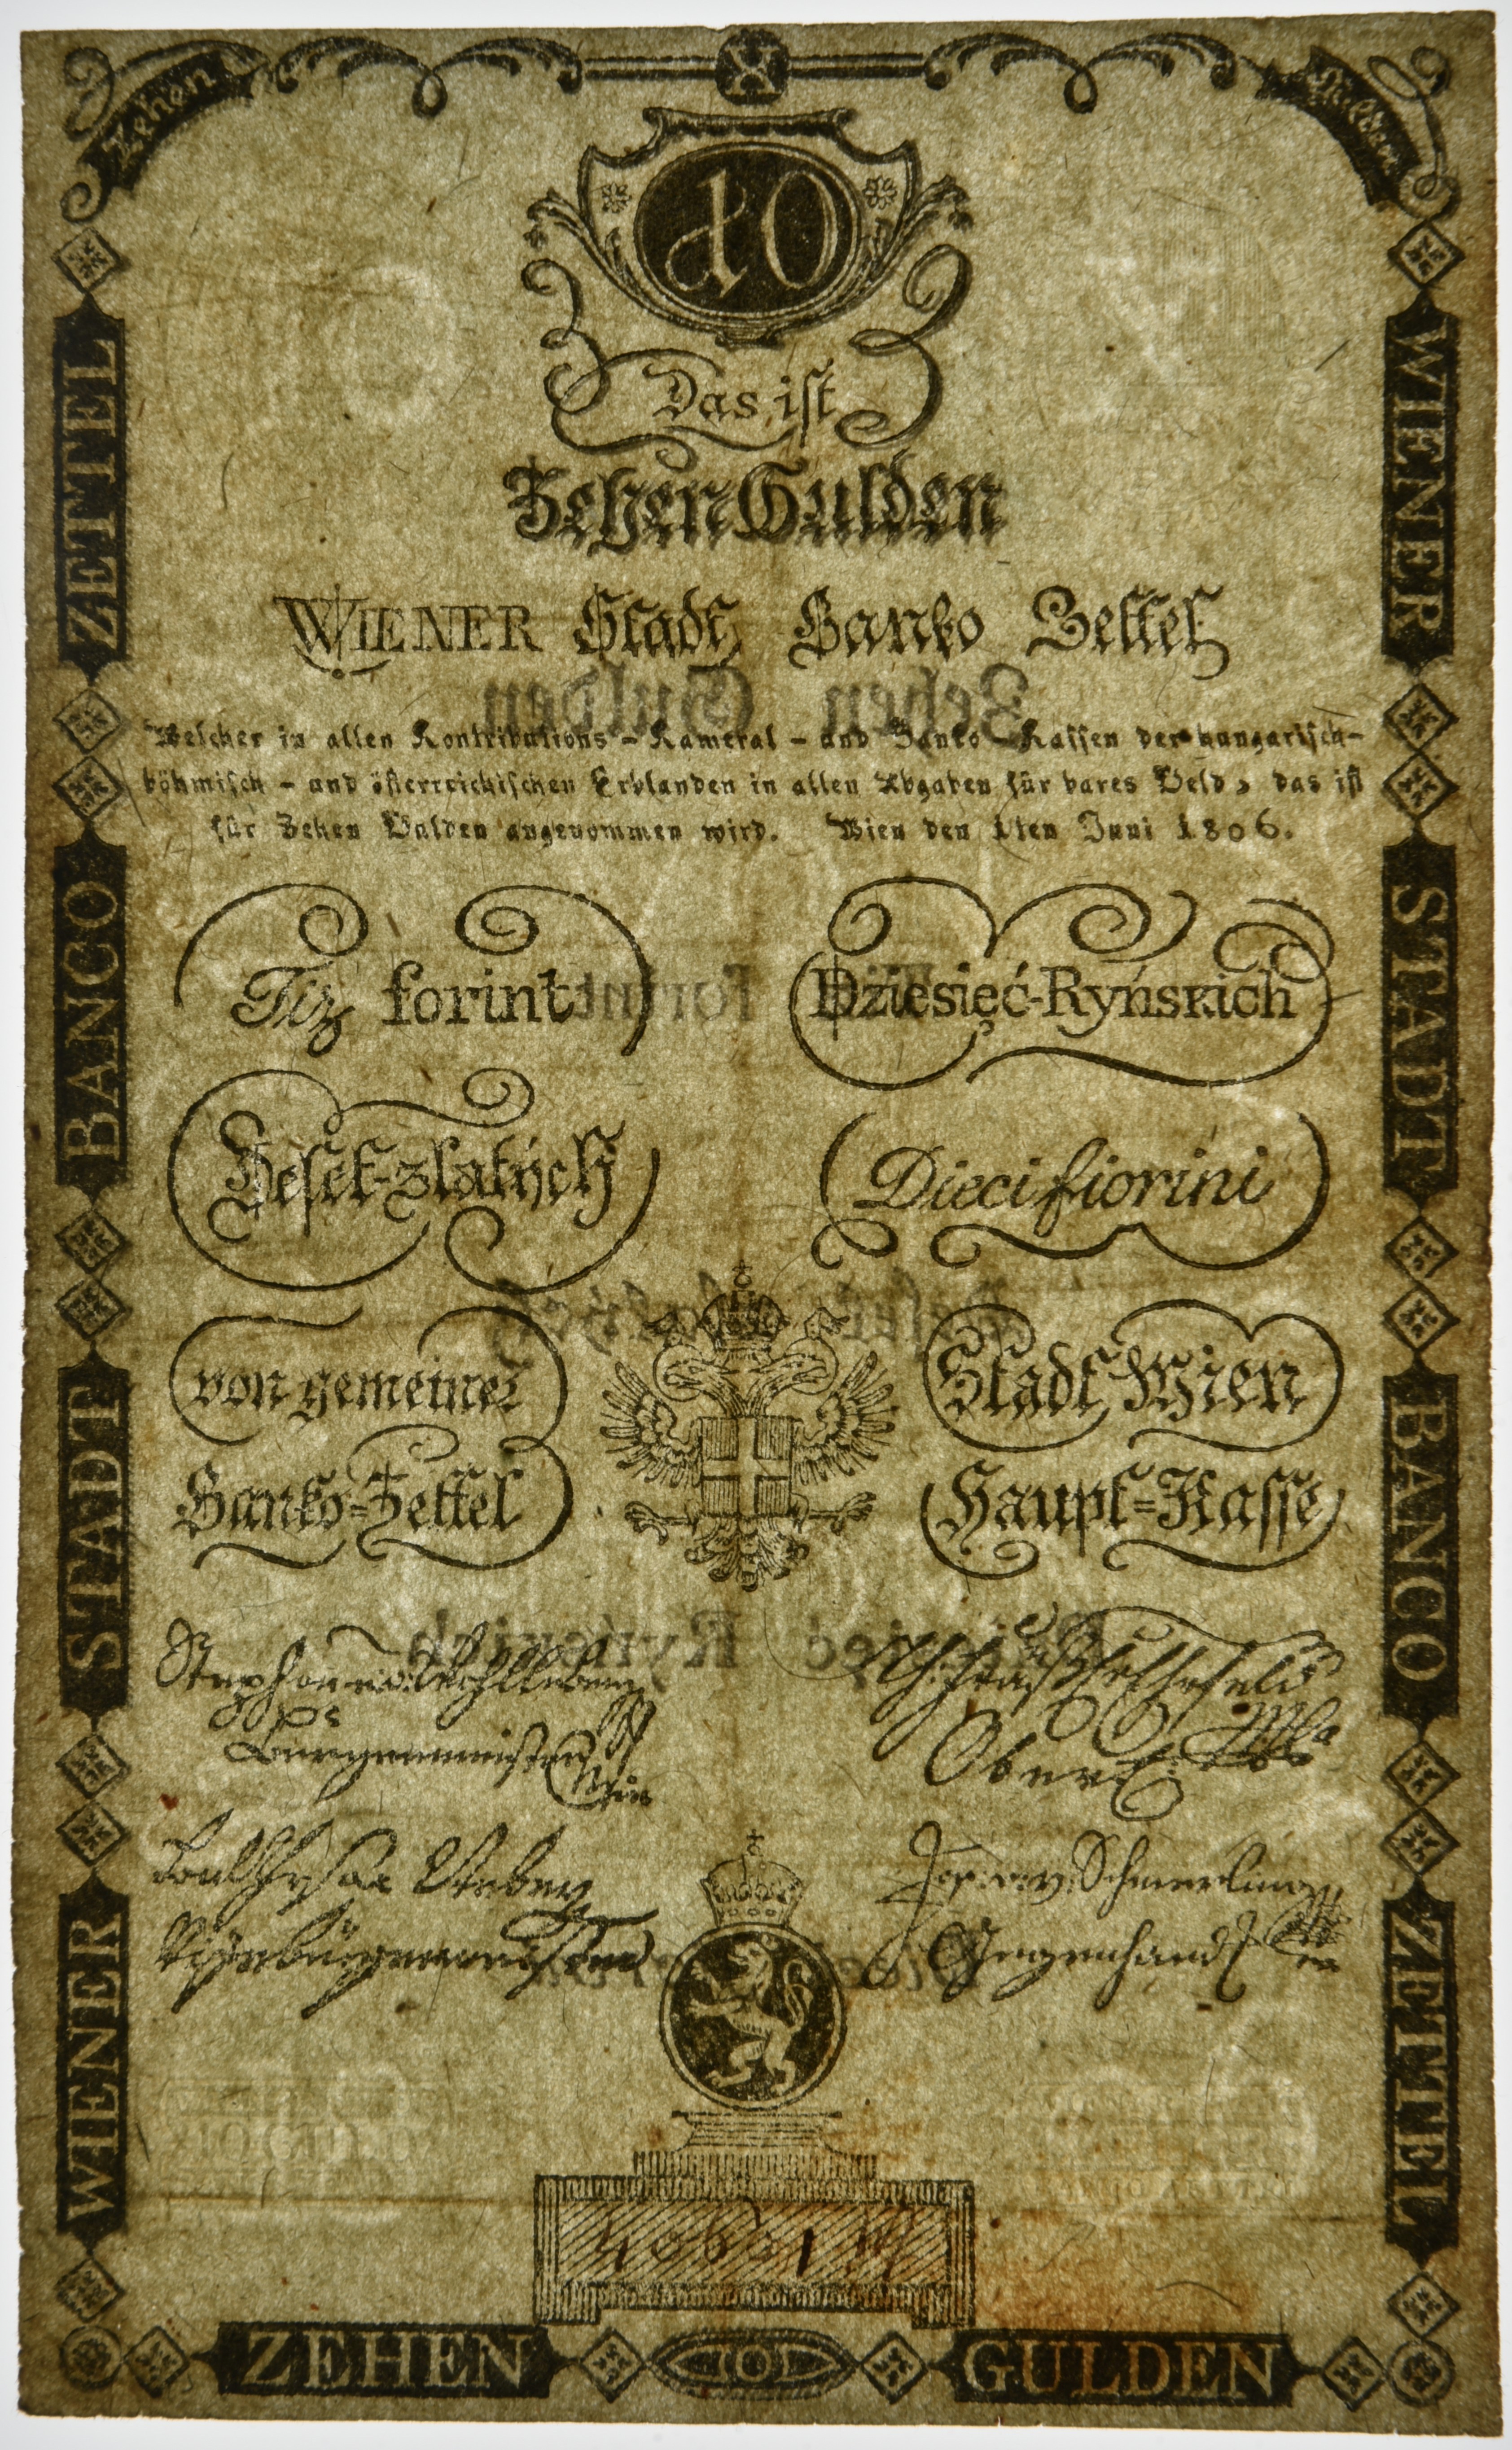 Zehen
X
Gulden
10
Das ist
Zehen Gulden
WIENER Stadt Banko Zettel
Welcher in allen Kontributions - Kameral - und Banko - Kassen der hungarisch-
böhmisch - und österreichischen Erblanden in allen Abgaben für bares Geld, das ist
für Zehen Gulden angenommen wird. Wien den 1ten Juni 1806.
Tiz forint
Dziesięć-Ryńskich
Deset-zlatých
Dieci fiorini
von gemeiner
Stadt Wien
Banko=Zettel
Haupt=Kasse
Stephan
Burgermeister
Ober
Weber
Schmerling
Gegenhand
ZETTEL
BANCO
STADT
WIENER
WIENER
STADT
BANCO
ZETTEL
ZEHEN
10
GULDEN
Zehen Gulden
forint
Ryńskich